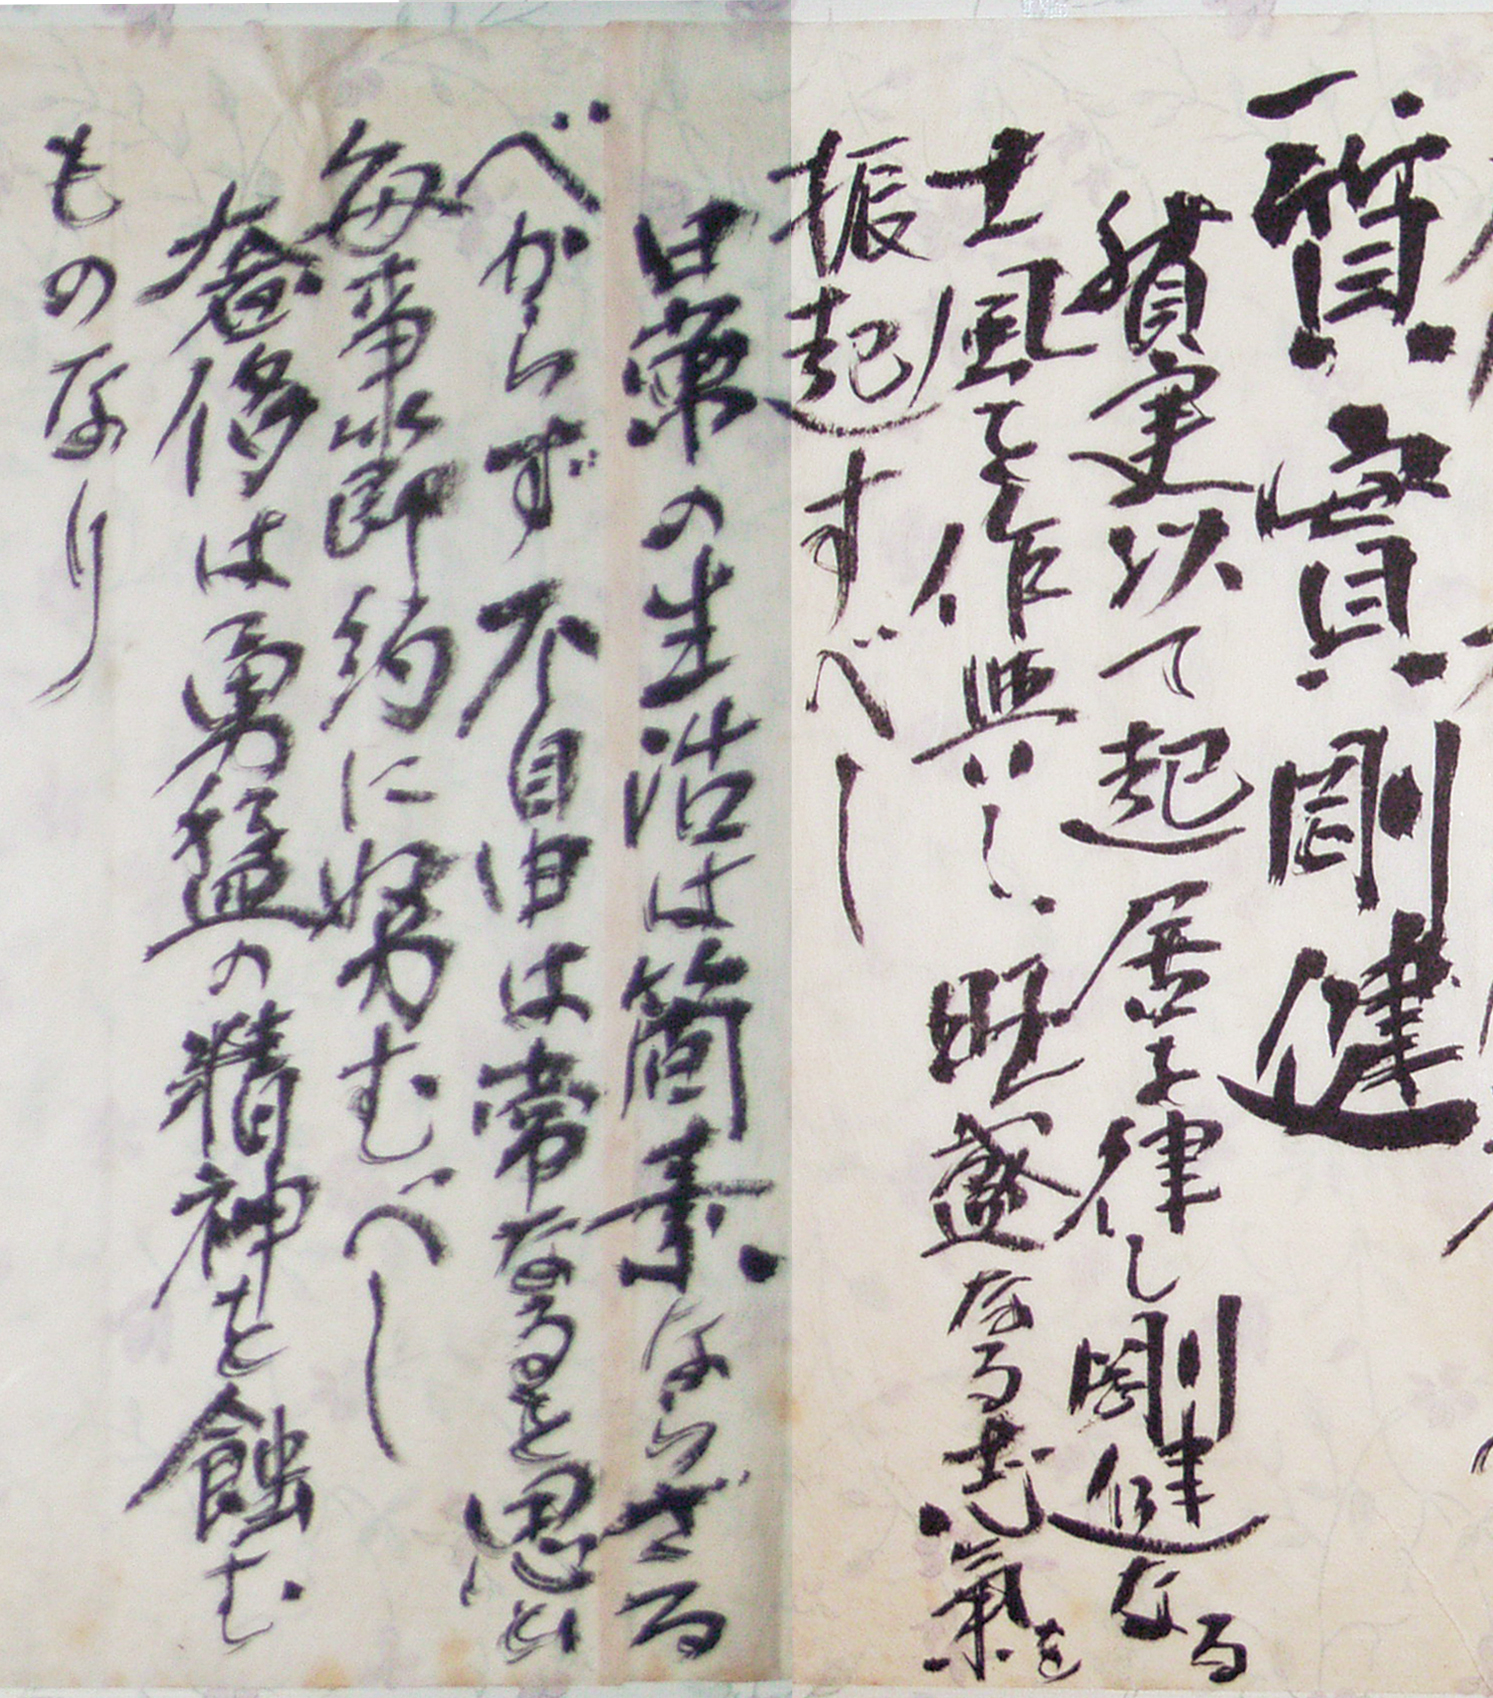 一、質實剛健
質実以て起居を律し剛健なる
士風を作興し、旺盛なる志氣を
振起すべし
日常の生活は簡素ならざる
べからず不自由は常なるを思ひ
毎事節約に努むべし
奢侈は勇猛の精神を蝕む
ものなり